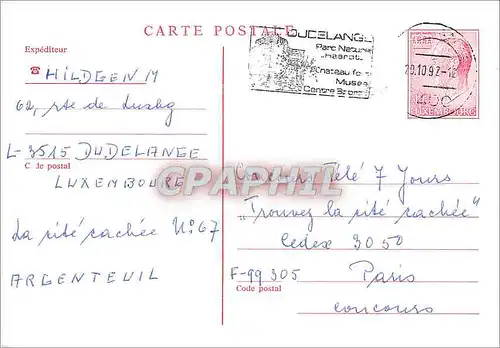 CARTE POSTALE
Expéditeur
HILDGEN M
62, rte de Luxbg
L-3515 DUDELANGE
C de postal
LUXEMBOURG
La cité cachée N° 67
ARGENTEUIL
DUDELANGE
Parc Naturel
Haard
Château fort
Musée
Centre
29.10.92-12
LUXEMBOURG
CPAPHIL
Concours Télé 7 Jours
"Trouvez la cité cachée"
Cedex 3050
F-99305 Paris
Code postal
concours